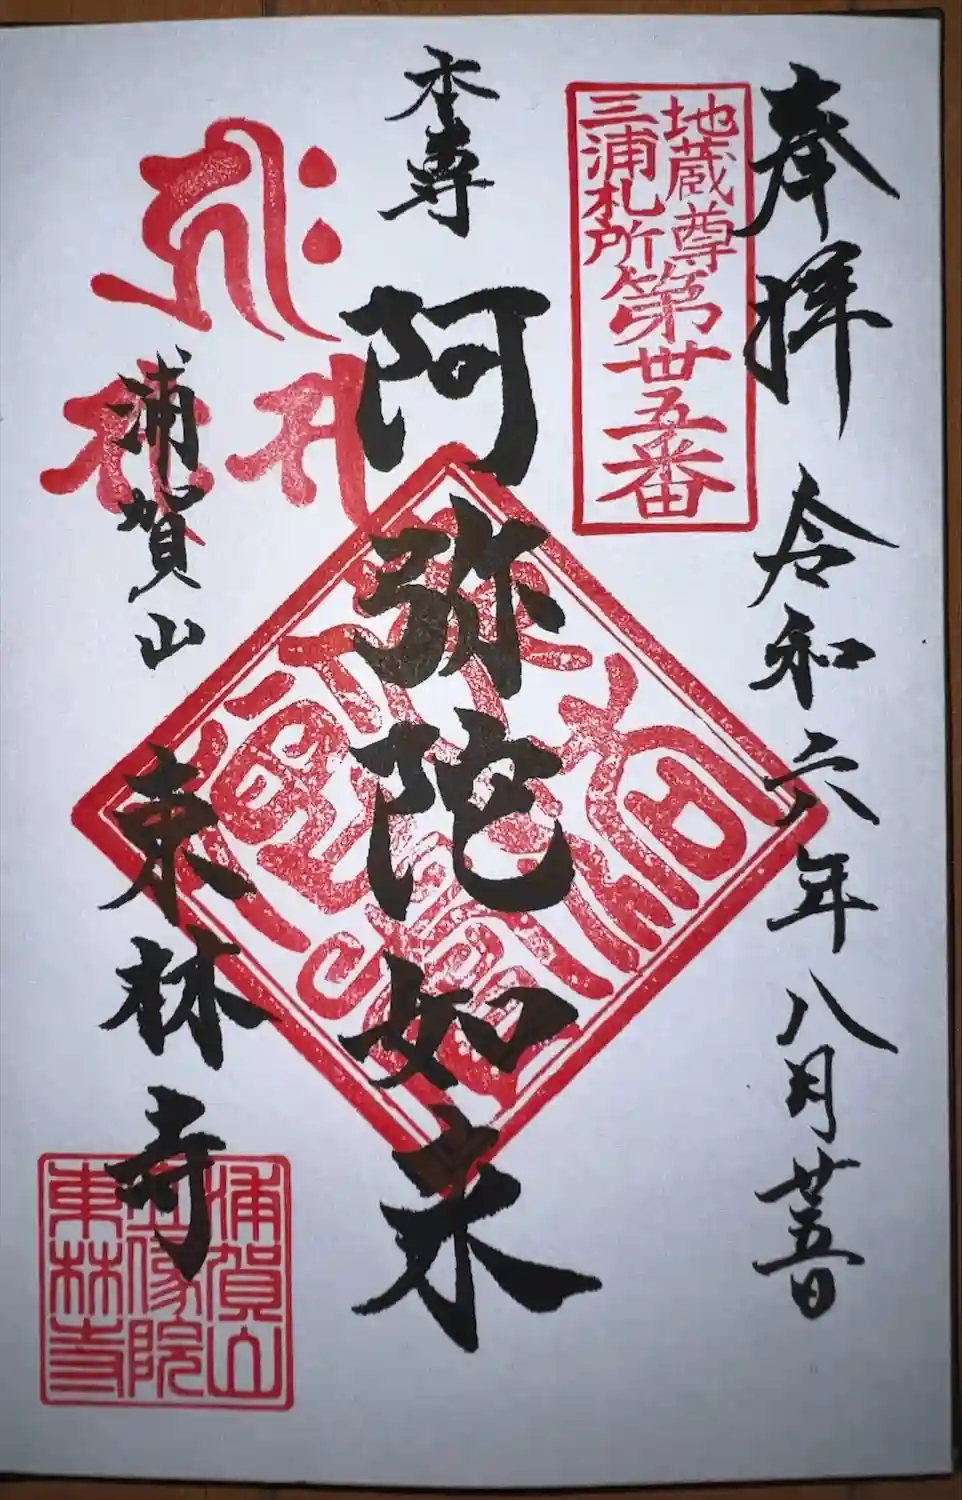 奉拝
令和六年八月廿五日
地蔵尊
三浦札所
第卅五番
本尊
阿弥陀如来
浦賀山
東林寺
浦賀山
立像院
東林寺